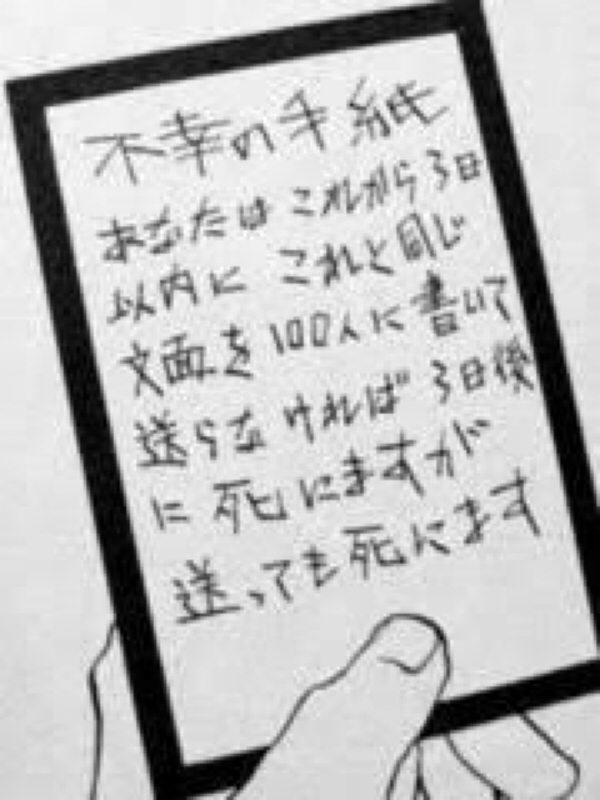 不幸の手紙
あなたは これから 3日
以内に これと同じ
文面を 100人に 書いて
送らな ければ 3日後
に 死にますが
送っても死にます